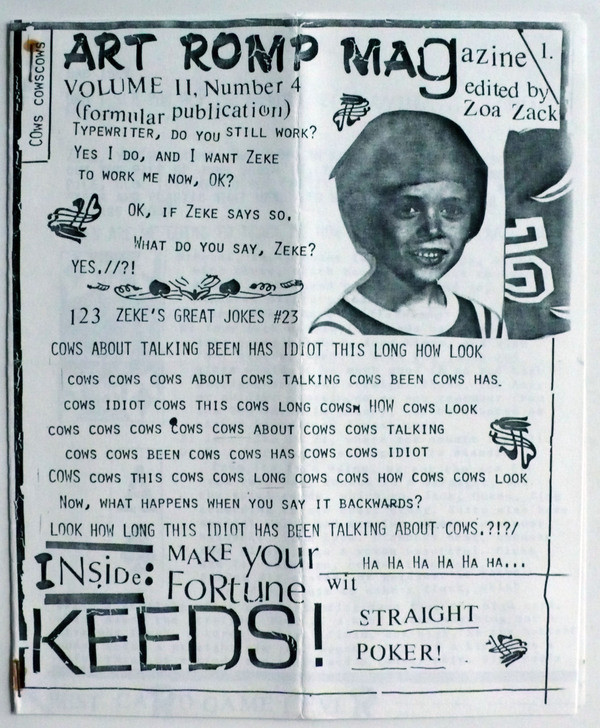 COWS COWSCOWS
ART ROMP MAGazine 1.
VOLUME 11, Number 4
edited by
(formular publication)
Zoa Zack
TYPEWRITER, DO YOU STILL WORK?
YES I DO, AND I WANT ZEKE
TO WORK ME NOW, OK?
OK, IF ZEKE SAYS SO.
WHAT DO YOU SAY, ZEKE?
YES.//?!
123 ZEKE'S GREAT JOKES #23
COWS ABOUT TALKING BEEN HAS IDIOT THIS LONG HOW LOOK
COWS COWS COWS ABOUT COWS TALKING COWS BEEN COWS HAS.
COWS IDIOT COWS THIS COWS LONG COWSM HOW COWS LOOK
COWS COWS COWS COWS COWS ABOUT COWS COWS TALKING
COWS COWS BEEN COWS COWS HAS COWS COWS IDIOT
COWS COWS THIS COWS COWS LONG COWS COWS HOW COWS COWS LOOK
NOW, WHAT HAPPENS WHEN YOU SAY IT BACKWARDS?
LOOK HOW LONG THIS IDIOT HAS BEEN TALKING ABOUT COWS.?!?/
HA HA HA HA HA HA...
INSiDe: MAKE your
FoRtune wit
STRAIGHT
POKER!
KEEDS!